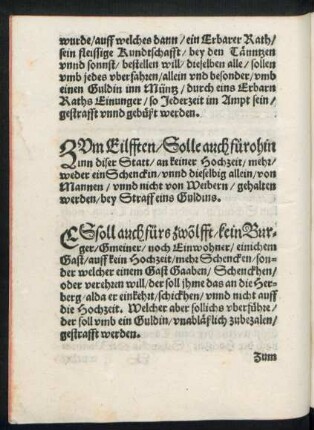 wurde/auff welches dann/ein Erbarer Rath/
sein fleissige Kundtschafft/bey den Tänntzen
vnnd sonnst/bestellen will/dieselben alle/sollen
vmb jedes vberfahrn/allein vnd besonder/vmb
einen Guldin inn Müntz/durch eins Erbarn
Raths Einunger/so Jederzeit im Ampt sein/
gestrafft vnnd gebüßt werden.
ZVm Eilfften/Solle auch fürohin
inn diser Statt/an keiner Hochzeit/mehr/
weder ein Schenckin/vnnd dieselbig allein/von
Mannen/vnnd nicht von Weibern/gehalten
werden/bey Straff eins Guldins.
ESsoll auch fürs zwölfft/kein Bur-
ger/Gmeiner/noch Einwohner/einichem
Gast/auff kein Hochzeit/mehr Schencken/son-
der welcher einem Gast Gaaben/Schenckhen/
oder verehren will/der soll jhme das an die Her-
berg/alda er einkehrt/schickhen/vnnd nicht auff
die Hochzeit. Welcher aber sollichs vberführe/
der soll vmb ein Guldin/vnabläßlich zubezalen/
gestrafft werden.
Zum